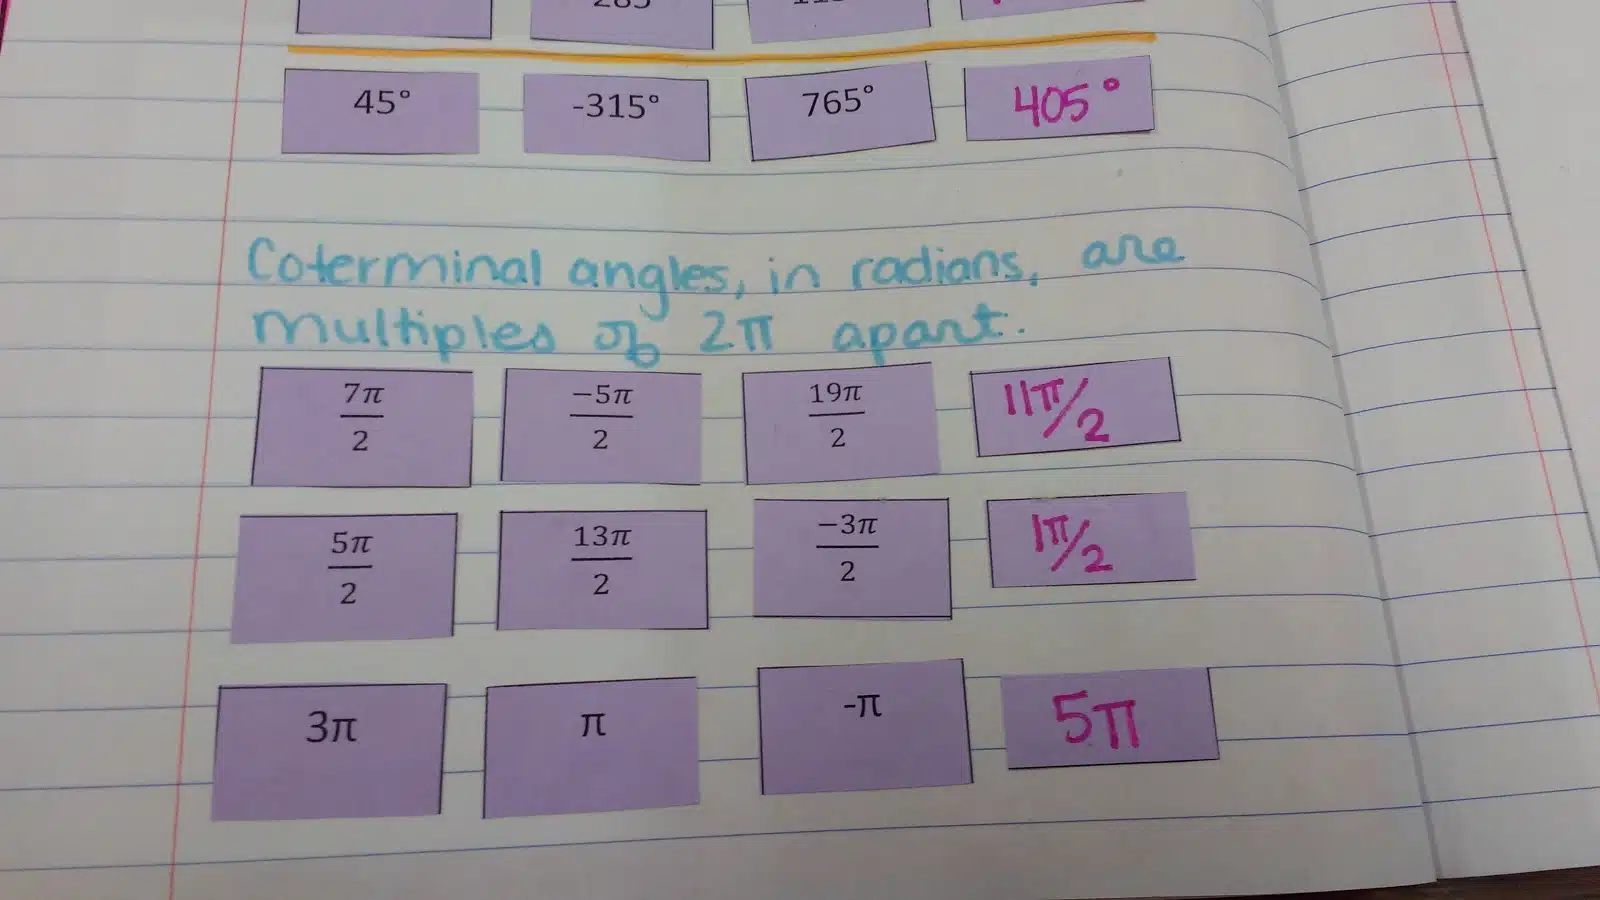 45° -315° 765° 405°
Coterminal angles, in radians, are
multiples of 2π apart.
7π/2 −5π/2 19π/2 11π/2
5π/2 13π/2 −3π/2 1π/2
3π π -π 5π